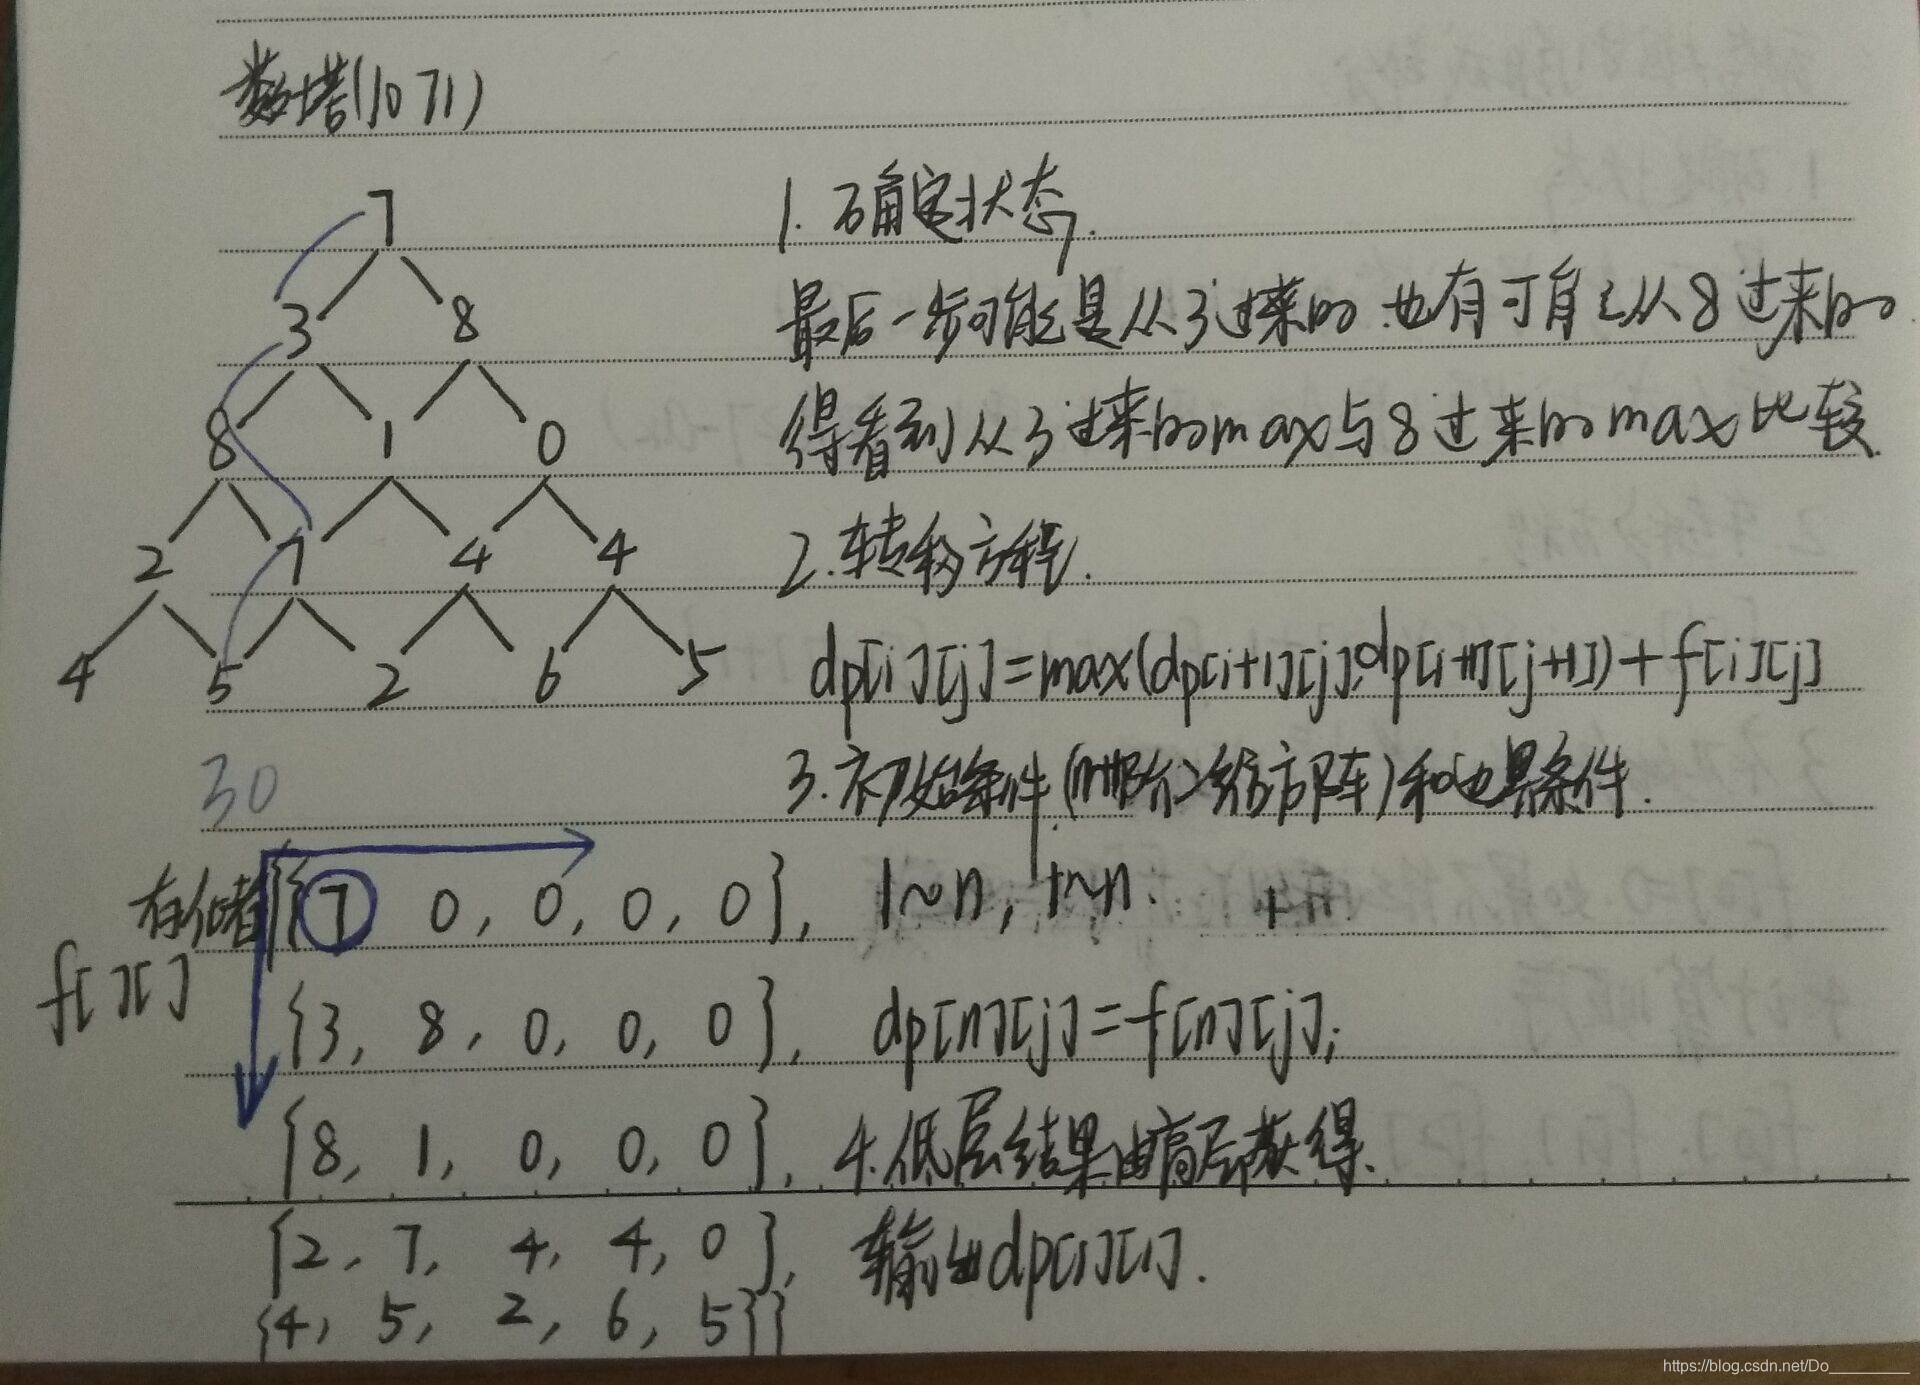 数塔(1071)
7
3 8
8 1 0
2 7 4 4
4 5 2 6 5
30
1. 确定状态.
最后一步可能是从3过来的 也有可能从8过来的.
得看到从3过来的max与8过来的max比较.
2. 转移方程.
dp[i][j]=max(dp[i+1][j],dp[i+1][j+1])+f[i][j]
3. 初始条件 方阵)和边界条件.
1~n, 1~n.
dp[n][j]=f[n][j];
4. 低层结果由高层获得.
输出dp[1][1].
存储
f[][]
{{7 0, 0, 0, 0},
{3, 8, 0, 0, 0},
{8, 1, 0, 0, 0},
{2, 7, 4, 4, 0},
{4, 5, 2, 6, 5}}
https://blog.csdn.net/Do_________